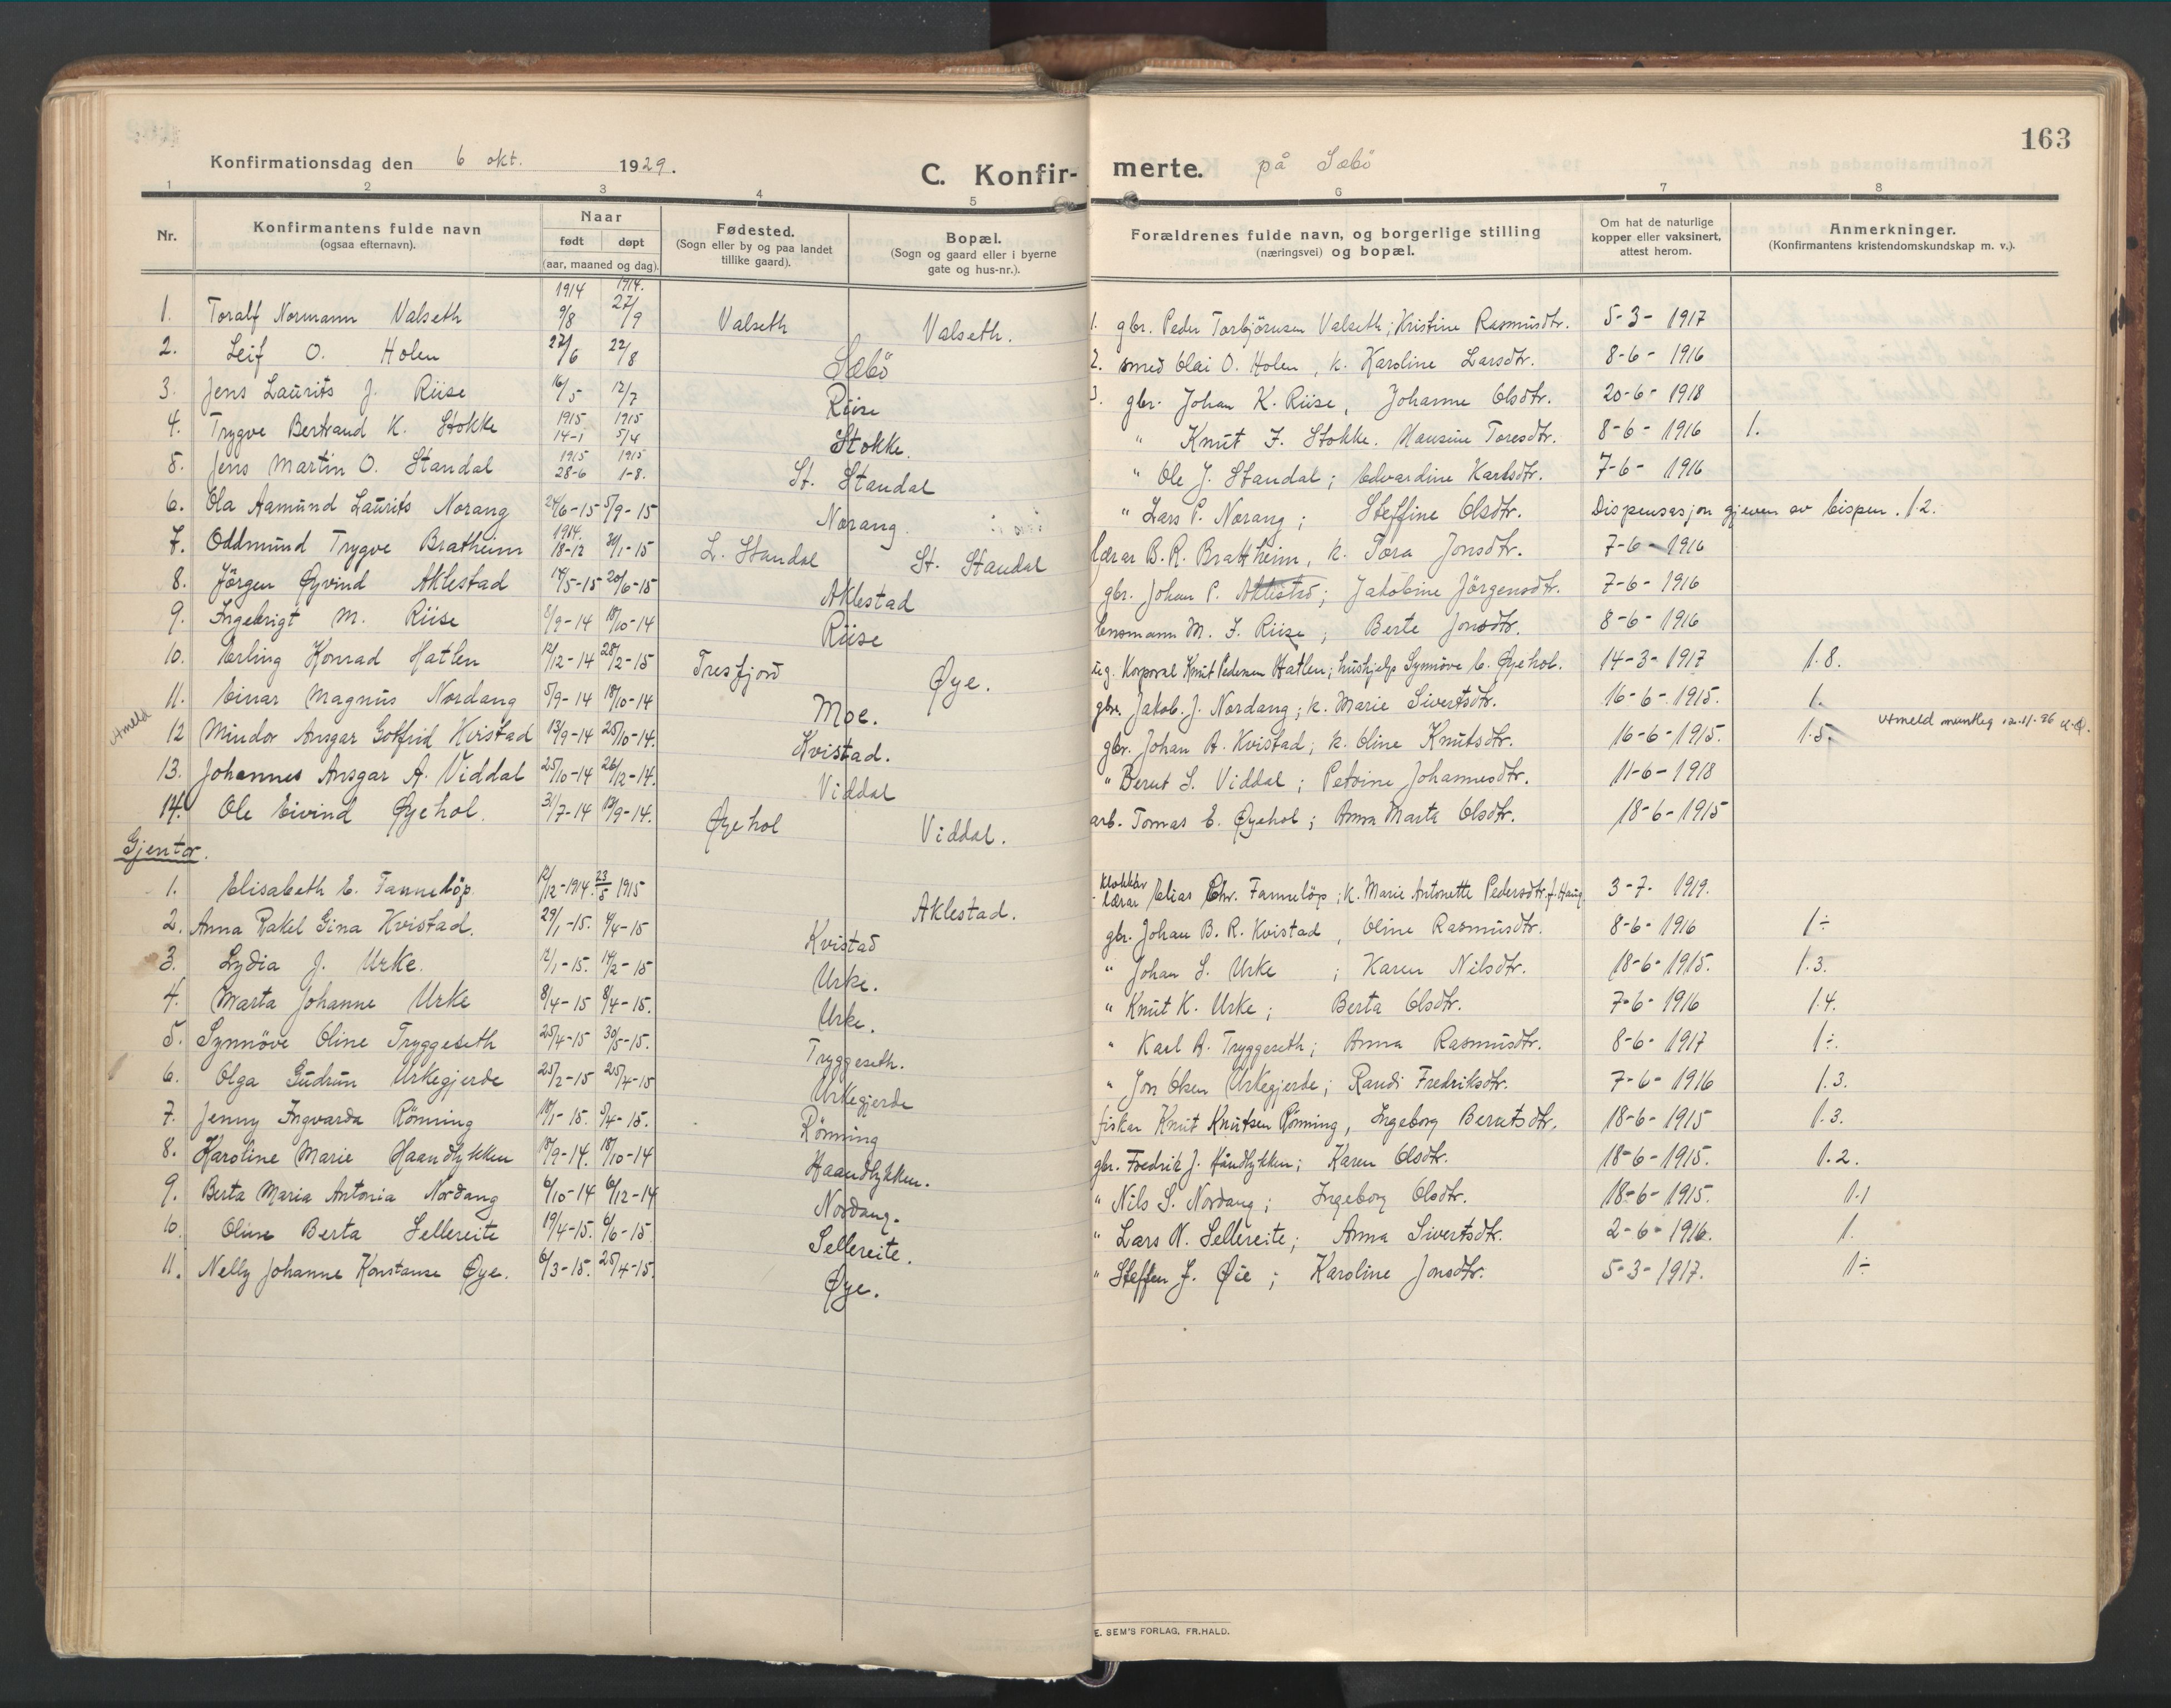 163
Konfirmationsdag den 6 okt. 1929. C. Konfir- merte. på Sæbö
1 2 3 4 5 6 7 8
Nr. Konfirmantens fulde navn (ogsaa efternavn). Naar født døpt (aar, maaned og dag). Fødested. (Sogn eller by og paa landet tillike gaard). Bopæl. (Sogn og gaard eller i byerne gate og hus-nr.). Forældrenes fulde navn, og borgerlige stilling (næringsvei) og bopæl. Om hat de naturlige kopper eller vaksinert, attest herom. Anmerkninger. (Konfirmantens kristendomskundskap m. v.).
1914 1914.
1. Toralf Normann Valseth 9/8 27/9 Valseth Valseth. 1. gbr. Peder Torbjörnsen Valseth; Kristine Rasmusdtr. 5-3- 1917
2. Leif O. Holen 27/6 22/8 Sæbö 2. smed Olai O. Holen, k. Karoline Larsdtr. 8-6- 1916
3. Jens Laurits J. Riise 16/5 12/7 Riise 3. gbr. Johan K. Riise, Johanne Olsdtr. 20-6- 1918
4. Trygve Bertrand K. Stokke 1915 14-1 1915 5/4 Stokke. " Knut F. Stokke. Hansine Toresdtr. 8-6- 1916 1.
5. Jens Martin O. Standal 1915 28-6 1915 1-8. St. Standal " Ole J. Standal; Edvardine Karlsdtr. 7-6- 1916
6. Ola Aamund Laurits Norang 24/6-15 5/9-15 Norang. " Lars P. Norang; Steffine Olsdtr. Dispensasjon gjeven av bispen. 1.2.
7. Oddmund Trygve Bratheim 1914. 18-12 30/1-15 L. Standal St. Standal lærar B. R. Brattheim, k. Tora Jonsdtr. 7-6-1916
8. Jörgen Øyvind Aklestad 14/5-15 20/6-15 Aklestad gbr. Johan P. Aklestad; Jakobine Jörgensdtr. 7-6-1916
9. Ingebrigt M. Riise 8/9-14 18/10-14 Riise lensmann M. F. Riise; Berte Jonsdtr. 8-6-1916
10. Erling Konrad Hatlen 12/12-14 28/2-15 Tresfjord Øye. ug. Korporal Knut Pedersen Hatlen; hushjelp Synnöve E. Øyehol. 14-3-1917 1.8.
11. Einar Magnus Nordang 5/9-14 18/10-14 Moe. gbr. Jakob. J. Nordang; k. Marie Sivertsdtr. 16-6-1915. 1.
Utmeld 12 Mindor Ansgar Gotfrid Kvistad 13/9-14 25/10-14. Kvistad. gbr. Johan A. Kvistad; k. Oline Knutsdtr. 16-6-1915. 1.5. Utmeld munleg 12.11.
13. Johannes Ansgar A. Viddal 25/10-14 26/12-14. Viddal " Berut S. Viddal; Petrine Johannesdtr. 11-6-1918
14. Ole Eivind Øyehol. 31/7-14 13/9-14. Øyehol Viddal. arb. Tomas E. Øyehol; Anna Marta Olsdtr. 18-6-1915
Gjentor.
1. Elisabeth E. Fannelöp. 12/12-1914. 23/5 1915 Aklestad. klokkar lærar Elias Chr. Fannelöp; k. Marie Antonette Pedersdtr. f. Haug. 3-7. 1919.
2. Anna Rakel Gina Kvistad. 29/1-15. 4/4-15 Kvistad gbr. Johan B. R. Kvistad, Oline Rasmusdtr. 8-6-1916 1÷
3. Lydia J. Urke. 12/1-15. 14/2-15 Urke. " Johan S. Urke; Karen Nilsdtr. 18-6-1915. 1.3.
4. Marta Johanne Urke 8/4-15 8/4-15. Urke. " Knut K. Urke; Berta Olsdtr. 7-6-1916 1.4.
5. Synnöve Oline Tryggeseth 25/4-15 30/5-15. Tryggeseth. " Karl A. Tryggeseth; Anna Rasmusdtr. 8-6-1917 1÷.
6. Olga Gudrun Urkegjerde 25/2-15 25/4-15 Urkegjerde " Jon Olsen Urkegjerde; Randi Fredriksdtr. 7-6-1916 1.3.
7. Jenny Ingvarda Rönning 18/1-15. 5/4-15. Rönning fiskar Knut Knutsen Rönning, Ingeborg Berutsdtr. 18-6-1915 1.3.
8. Karoline Marie Haandlykken 18/9-14. 18/10-14 Haandlykken. gbr. Fredrik J. Håndlykken; Karen Olsdtr. 18-6-1915. 1.2.
9. Berta Maria Antonia Nordang 6/10-14 6/12-14 Nordang. " Nils S. Nordang; Ingeborg Olsdtr. 18-6-1915. 1.1
10. Oline Berta Sellereite 19/4-15. 6/6-15 Sellereite. " Lars N. Sellereite; Anna Sivertsdtr. 2-6-1916. 1.
11. Nelly Johanne Konstanse Øye. 6/3-15. 25/4-15. Øye. " Steffen J. Øie; Karoline Jonsdtr. 5-3-1917. 1÷
E. SEM'S FORLAG, FR.HALD.